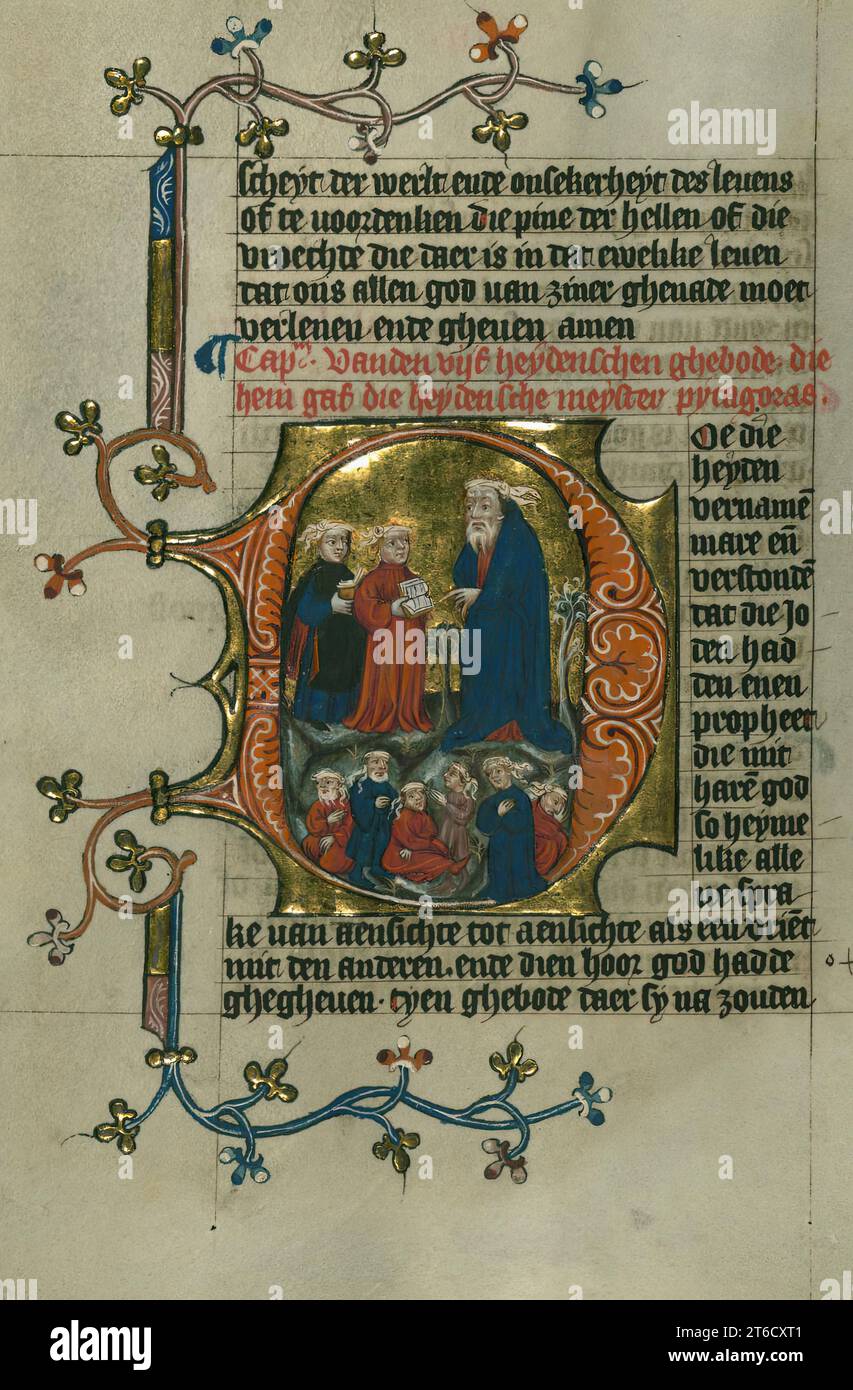 scheyt der werlt ende onsekerheyt des leuens
of te voordenken die pine der hellen of die
die daer is in dat ewelike leuen
dat ons allen god van ziner ghenade moet
verlenen ende gheuen amen
Capm. Vanden vijf heydenschen ghebode. die
hem gaf die heydensche meyster pytagoras.
Doe die
heyden
vernamē
mare eñ
verstondē
dat die Jo
den had
den enen
propheet
die mit
harē god
so heyme
like alle
we spra
ke van aensichte tot aensichte als een vriēt
mit den anderen. ende dien hoor god hadde
ghegheuen. tyen ghebode daer sy na zouden
alamy
Image ID: 2T6CXT1
www.alamy.com